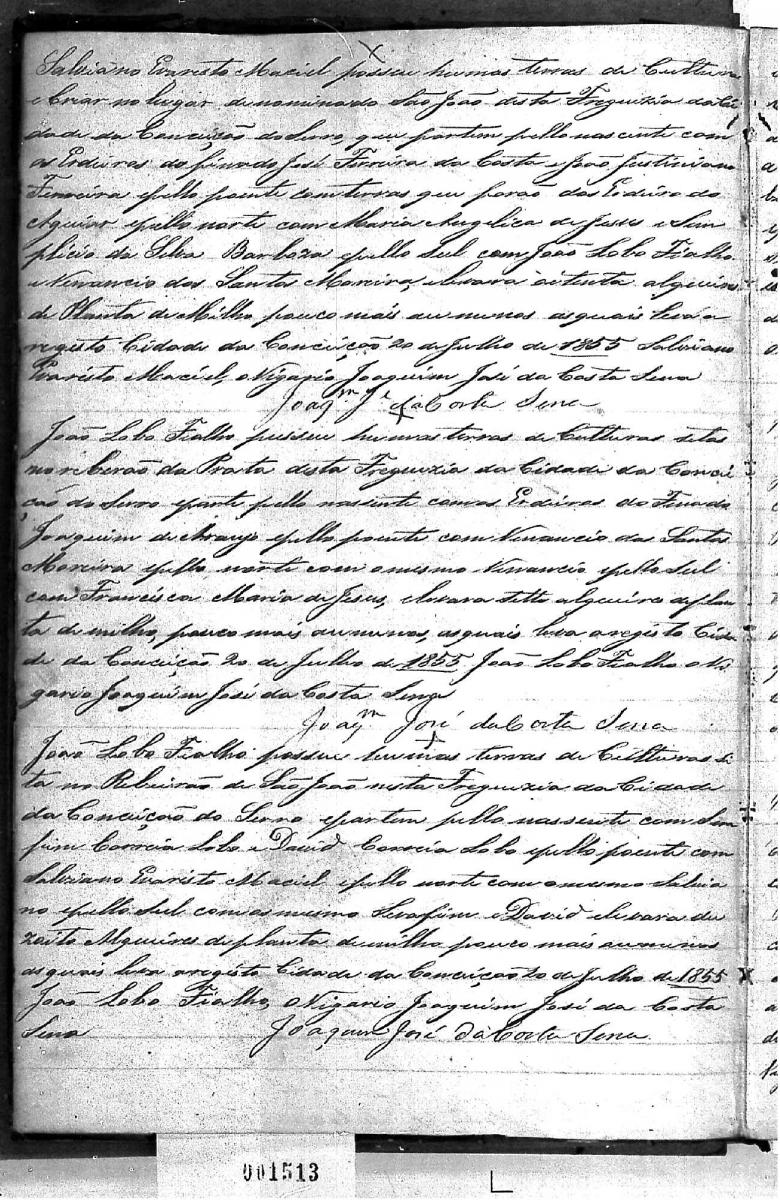 Salviano Evaristo Maciel possue humas terras de Cultura
e Criar no lugar denominado São João desta Freguizia da Ci
dade da Conceição do Serro, que partem pello nascente com
os Erdeiros do finado José Ferreira da Costa e João Justiniano
Ferreira epello poente com terras que forão dos Erdeiro do
Aguiar epello norte com Maria Angelica de Jesus e Sim
plicio da Silva Barboza epello Sul com João Lobo Fialho
e Venancio dos Santos Moreira, elevara oitenta alqueires
de Planta de Milho pouco mais ou menos as quais leva a
registo Cidade da Conceição 20 de Julho de 1855 Salviano
Evaristo Maciel, o Vigario Joaquim José da Costa Sena
Joaqm Je da Costa Sena
João Lobo Fialho possue humas terras de Culturas sitas
no riberão da Prata desta Freguizia da Cidade da Concei
ção do Serro eparte pello nassente com os Erdeiros do Finado
Joaquim de Araujo epello poente com Venancio dos Santos
Moreira epello norte com o mesmo Venancio epello Sul
com Francisca Maria de Jesus, elevara sette alqueires de plan
ta de milho, pouco mais ou menos, as quais leva a registo Cida
de da Conceição 20 de Julho de 1855 João Lobo Fialho o Vi
gario Joaquim José da Costa Sena
Joaqm José da Costa Sena
João Lobo Fialho possue humas terras de Culturas si
ta no Ribeirão de São João nesta Freguizia da Cidade
da Conceição do Serro epartem pello nassente com Sera
fim Correia Lobo e David Correia Lobo epello poente com
Salviano Evaristo Maciel epello norte com o mesmo Salvia
no epello Sul com os mesmo Serafim e David elevara de
zoito Alqueires de planta de milho pouco mais ou menos
as quais leva a registo Cidade da Conceição 20 de Julho de 1855
João Lobo Fialho, o Vigario Joaquim José da Costa
Sena Joaquim José da Costa Sena
001513